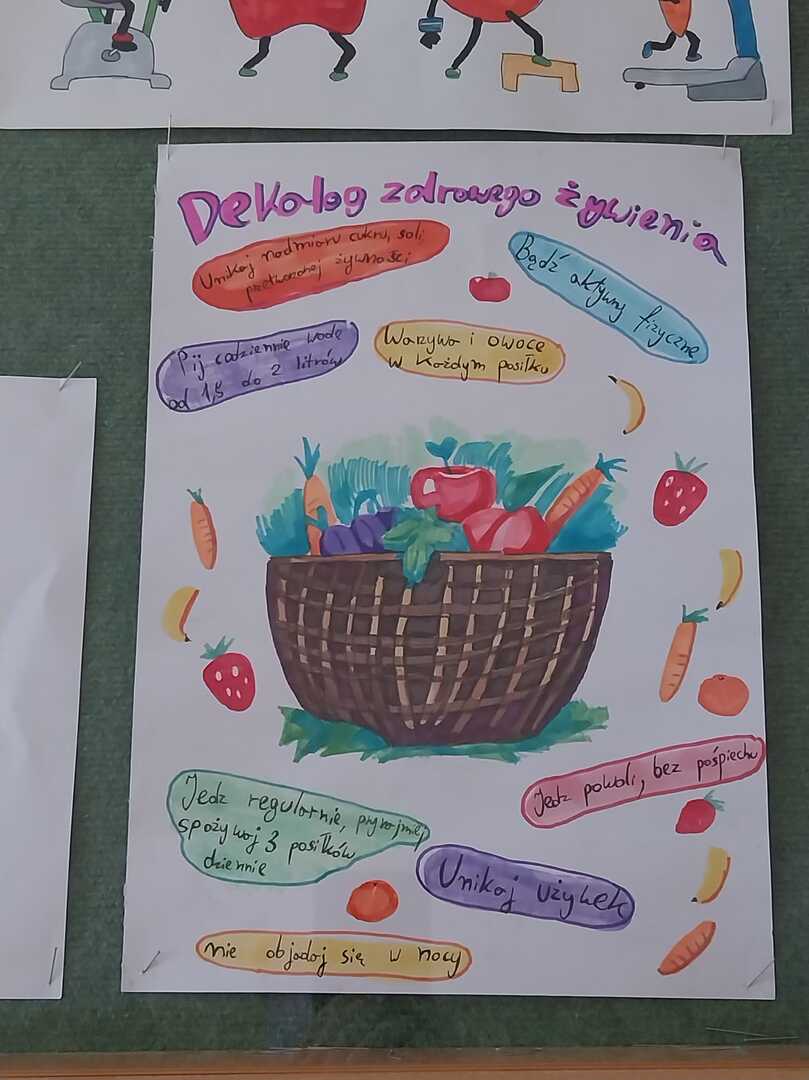 Dekalog zdrowego żywienia
Unikaj nadmiaru cukru, soli,
przetworzonej żywności
Bądź aktywny fizyczne
Pij codziennie wodę
od 1,5 do 2 litrów
Warzywa i owoce
w każdym posiłku
Jedz regularnie, przynajmniej
spożywaj 3 posiłków
dziennie
Jedz powoli, bez pośpiechu
Unikaj używek
nie objadaj się w nocy